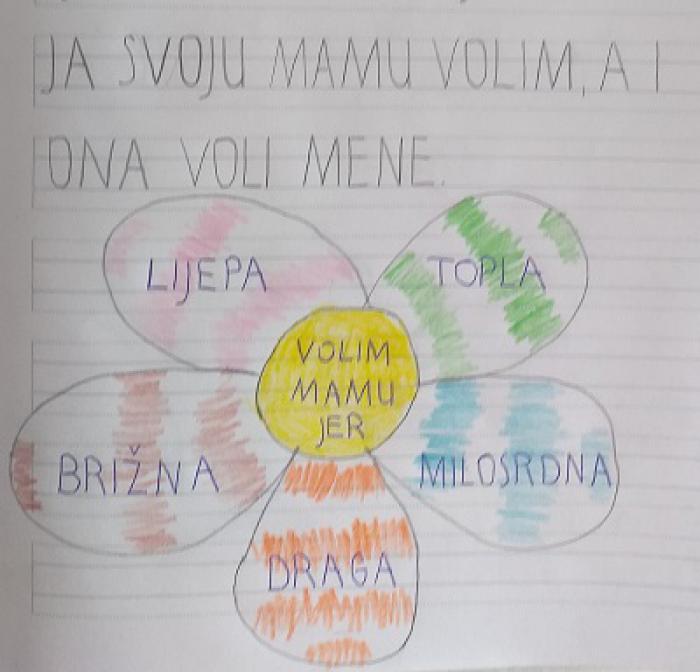 JA SVOJU MAMU VOLIM, A I
ONA VOLI MENE.
LIJEPA
TOPLA
VOLIM
MAMU
JER
BRIŽNA
MILOSRDNA
DRAGA